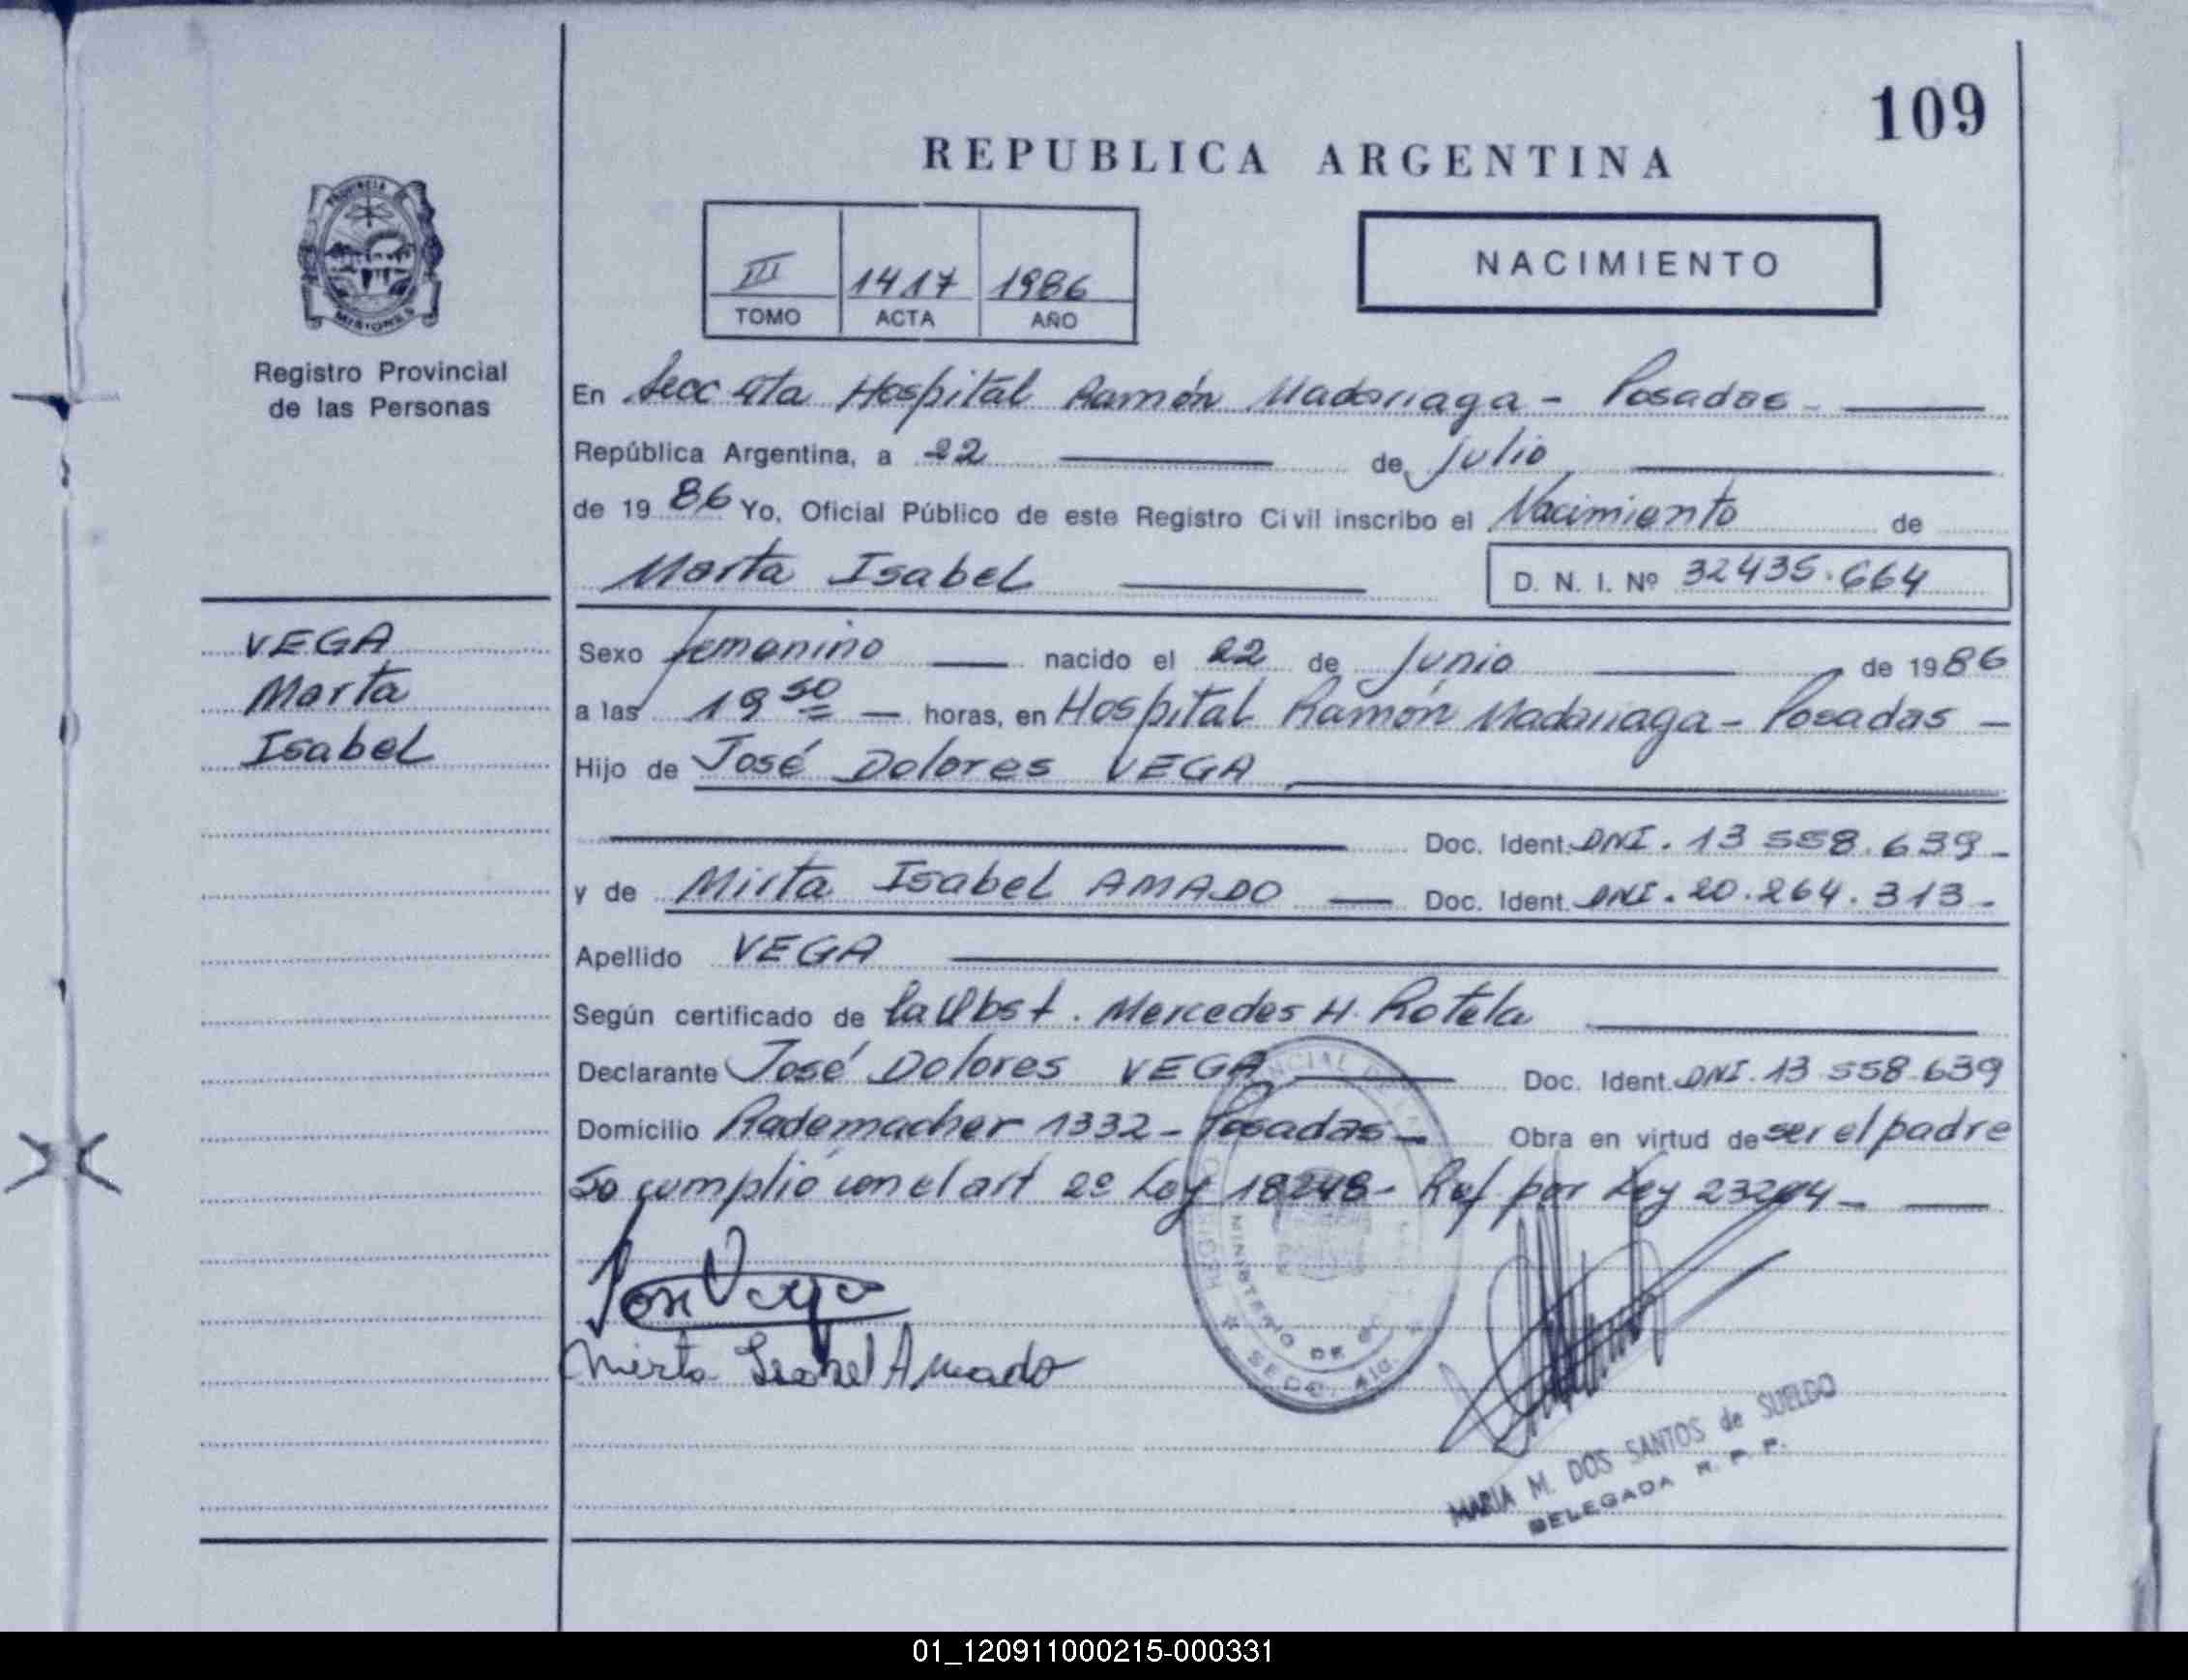 109
REPUBLICA ARGENTINA
PROVINCIA
MISIONES
Registro Provincial
de las Personas
III 1417 1986
TOMO ACTA AÑO
NACIMIENTO
En Secc 4ta Hospital Ramón Madariaga - Posadas -
República Argentina, a 22 de Julio
de 1986 Yo, Oficial Público de este Registro Civil inscribo el Nacimiento de
Marta Isabel D. N. I. Nº 32435.664
VEGA
Marta
Isabel
Sexo femenino nacido el 22 de Junio de 1986
a las 19 50 — horas, en Hospital Ramón Madariaga - Posadas -
Hijo de José Dolores VEGA
Doc. Ident. DNI. 13 558.639 -
y de Mirta Isabel AMADO — Doc. Ident. DNI. 20.264.313 -
Apellido VEGA
Según certificado de la Obst. Mercedes H. Rotela
Declarante José Dolores VEGA Doc. Ident. DNI. 13 558.639
Domicilio Rademacher 1332 - Posadas - Obra en virtud de ser el padre
Se cumplió con el art 2º Ley 18248 - Ref por Ley 23264 -
José Vega
Mirta Isabel Amado
MINISTERIO DE
MARIA M. DOS SANTOS de SUELDO
DELEGADA R. P. P.
01_120911000215-000331